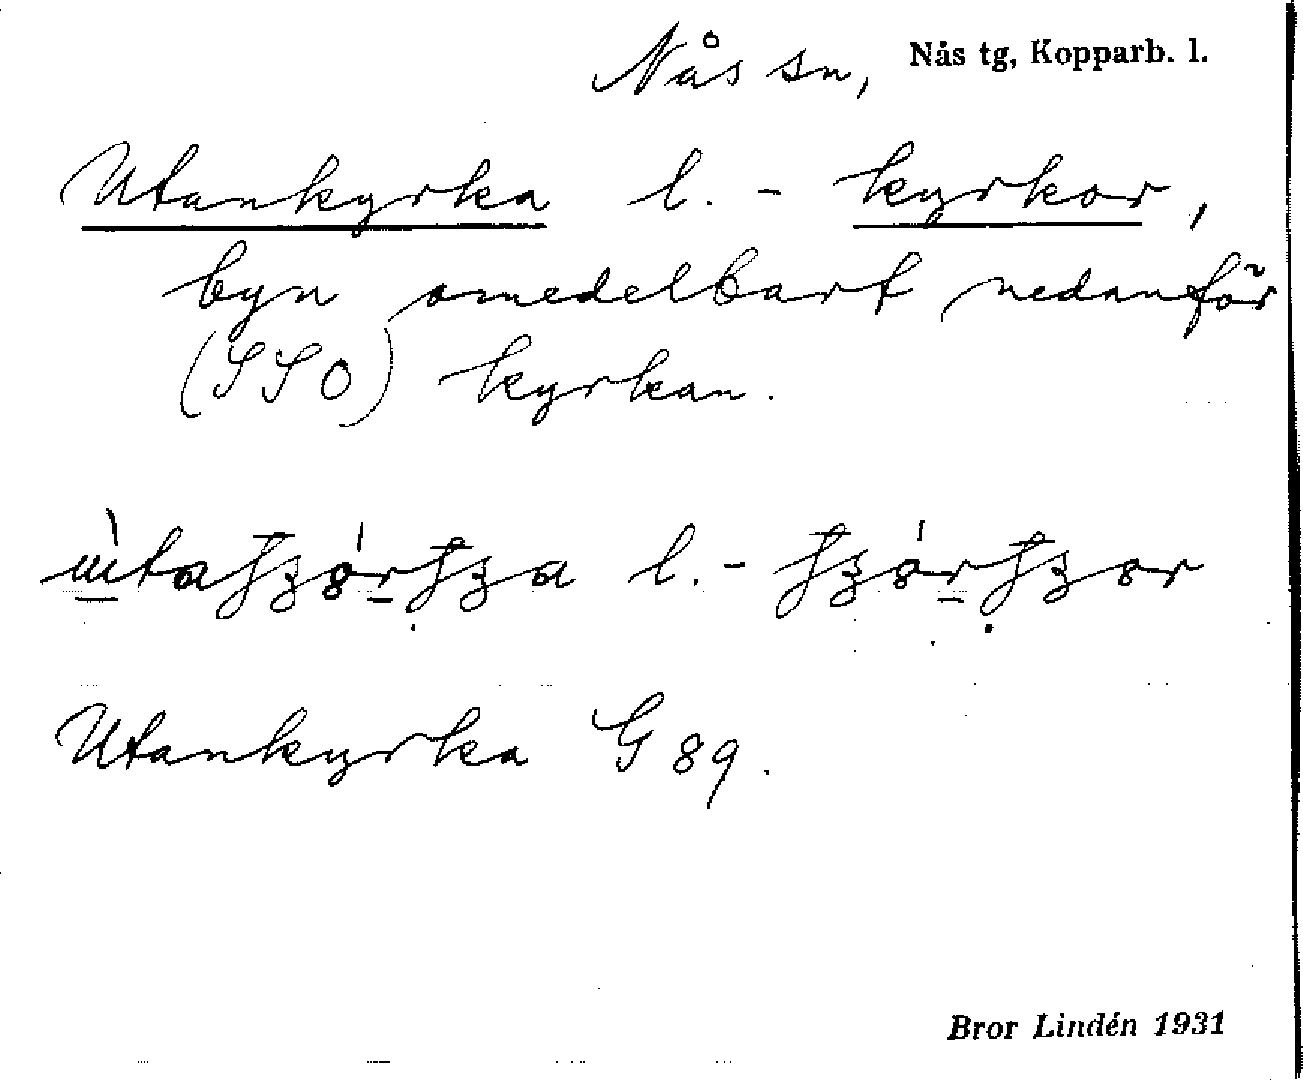 Nås sn, Nås tg, Kopparb. l.
Utankyrka l. -kyrkor,
byn omedelbart nedanför
(SSO) kyrkan.
l.-
Utankyrka G 89.
Bror Lindén 1931